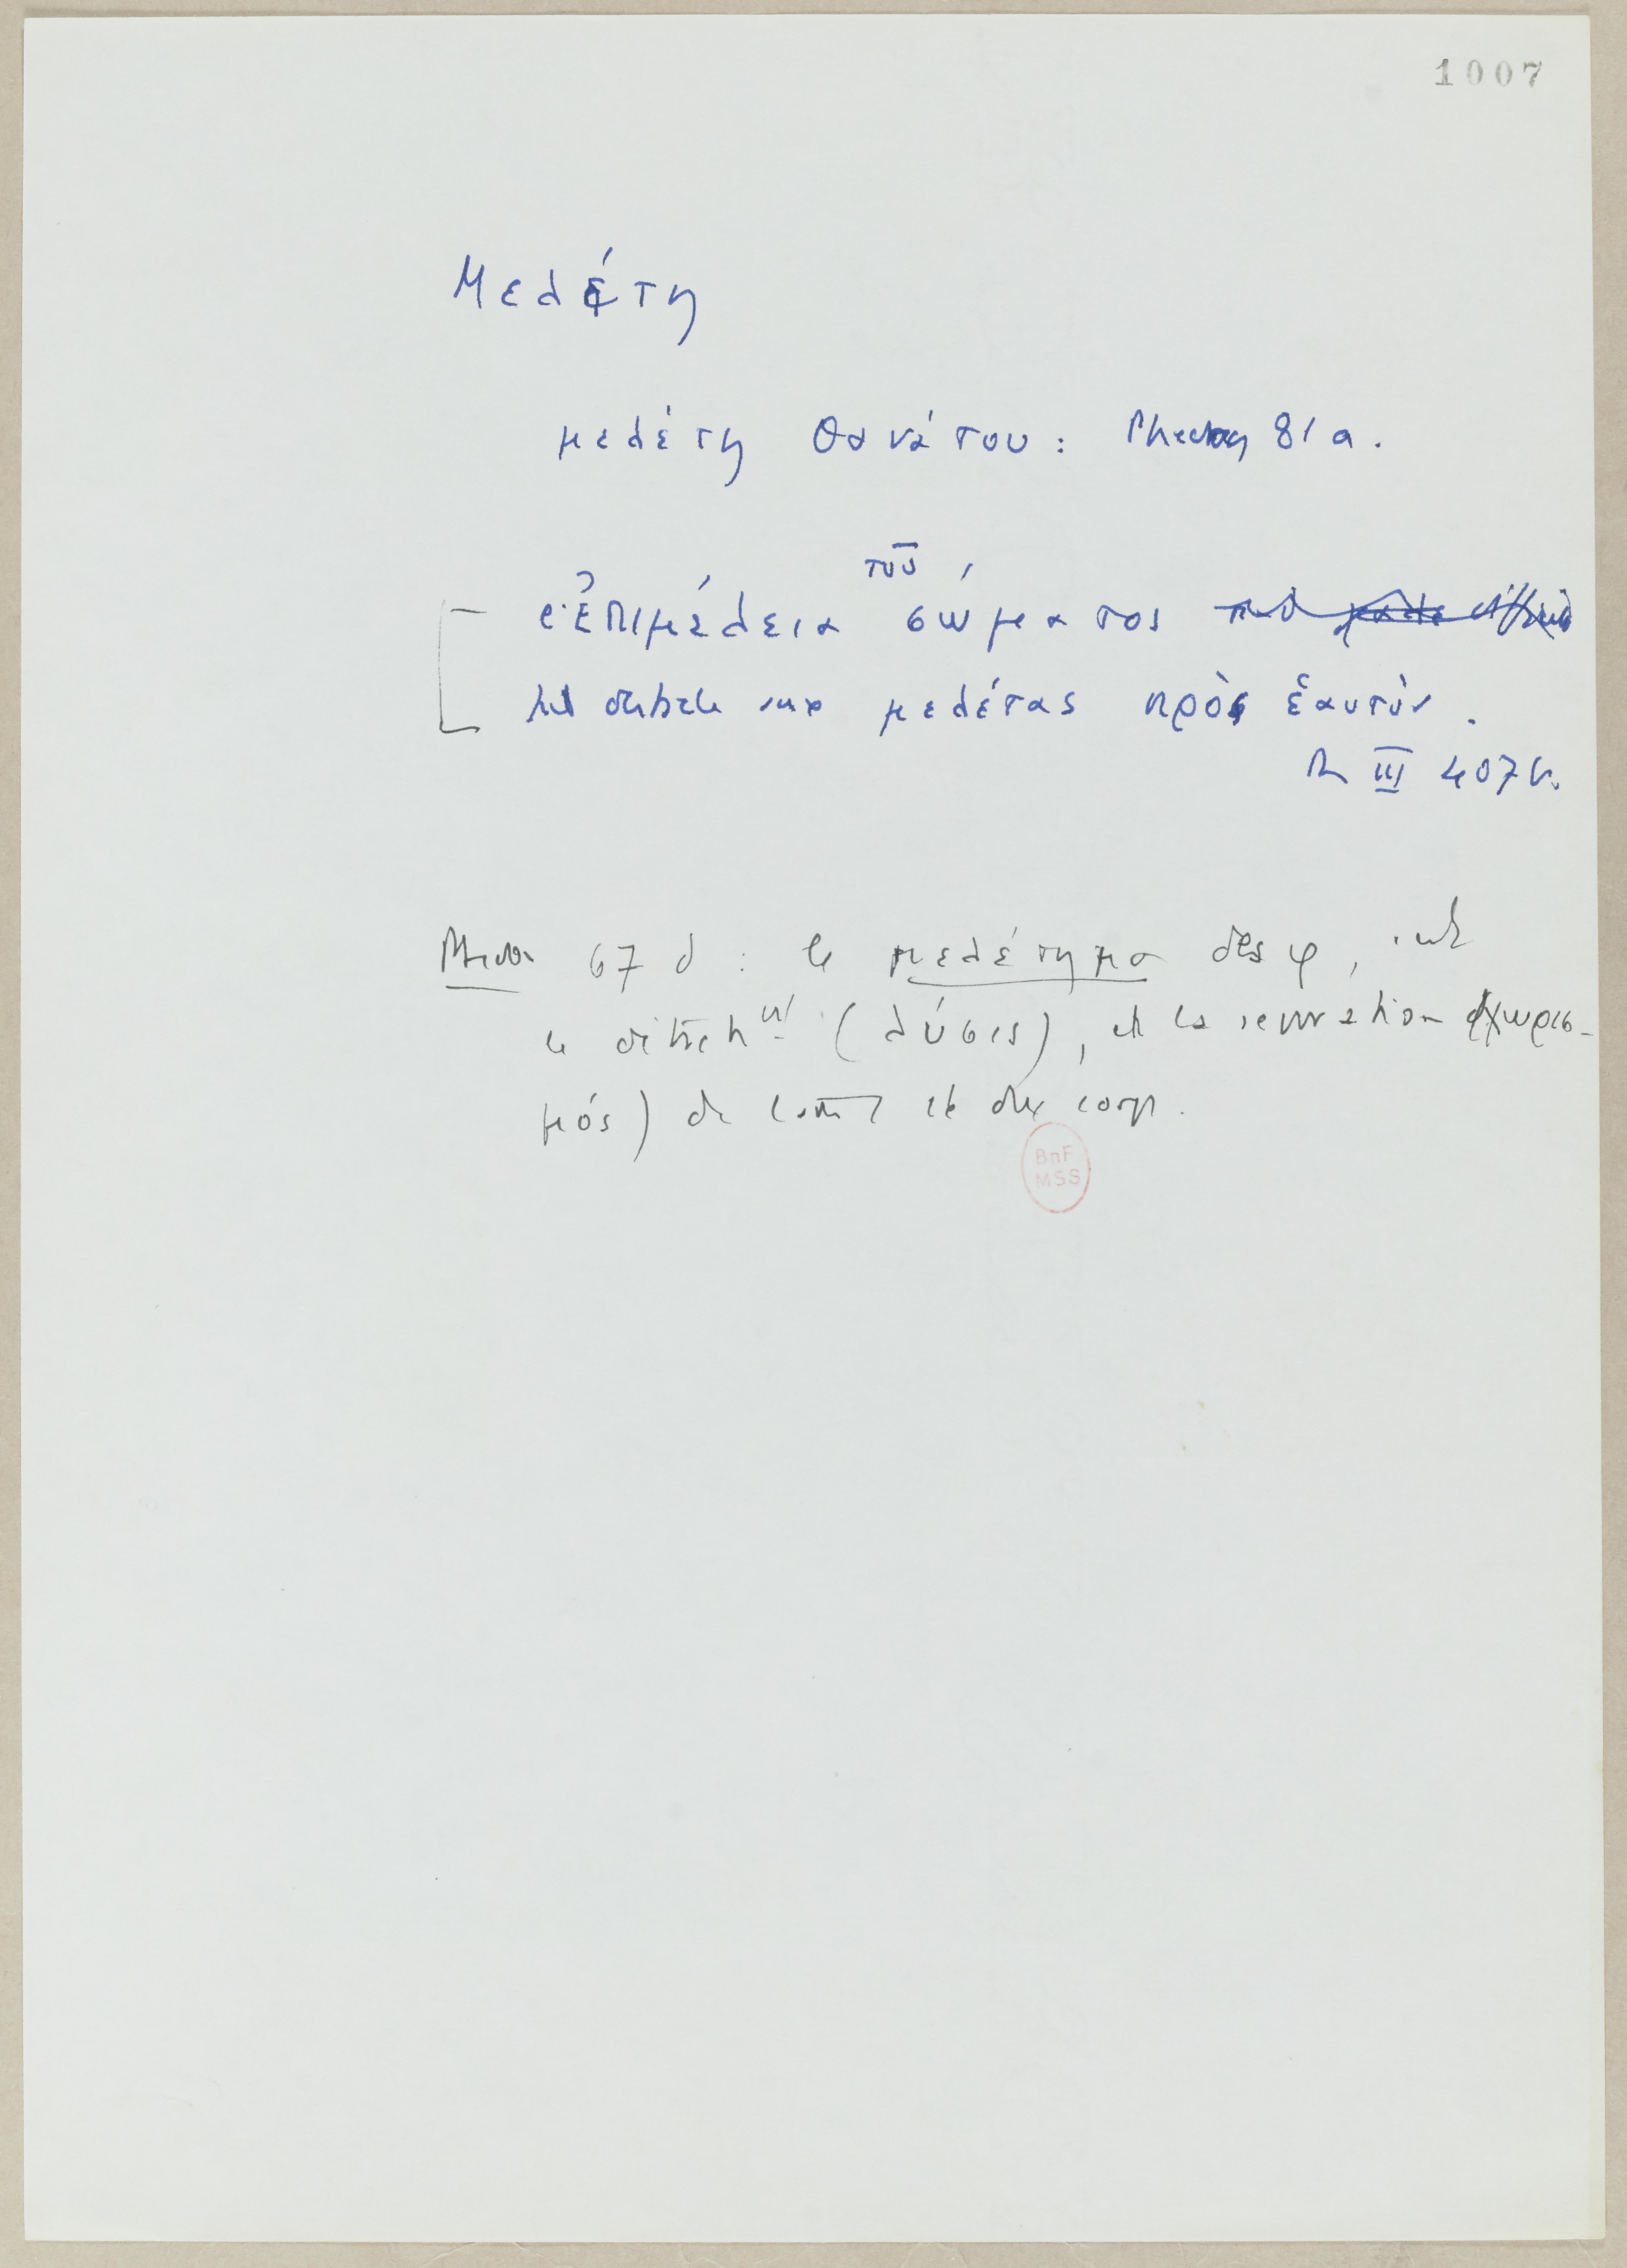 1007
Μελέτη
μελέτη θανάτου : Phedon 81 a.
τοῦ
ἐπιμέλεια σώματος
μελέτας πρὸς ἑαυτόν.
Rep III 407 b.
Phedon 67 d : le μελέτημα des φ, c'est
le détacht (λύσις), et la separation (χωρισ-
μός) de l'âme et du corps.
BnF
MSS